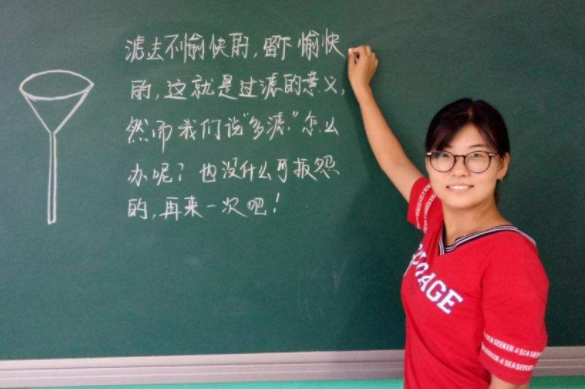 滤去不愉快的，留下愉快
的，这就是过滤的意义，
然而我们说“多滤”怎么
办呢？也没什么可报怨
的，再来一次吧！
GAGE
SEA SEEKER